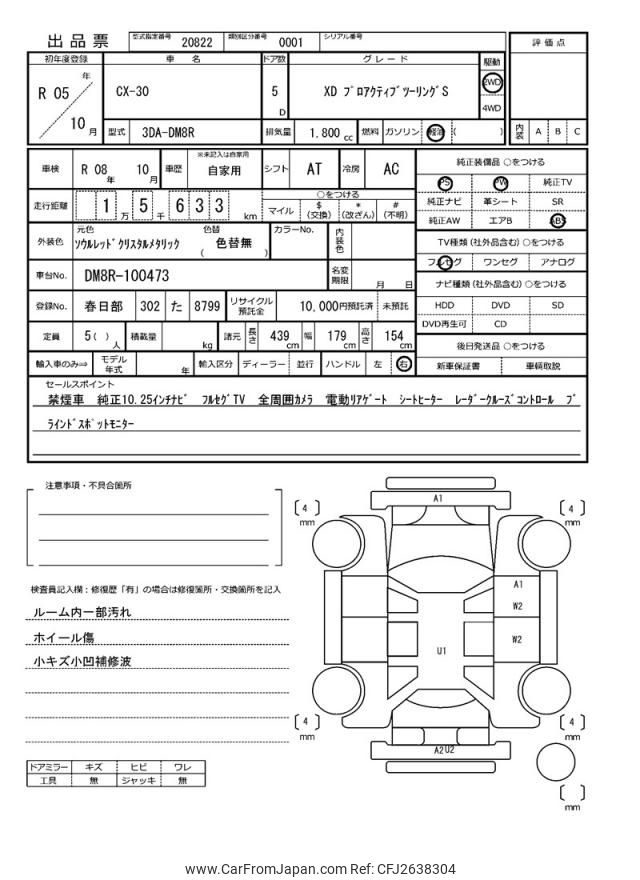 出品票 型式指定番号 20822 類別区分番号 0001 シリアル番号
評価点
初年度登録 車名 ドア数 グレード 駆動
R 05 年 10 月 CX-30 5 D XD プロアクティブツーリングS 2WD 4WD
型式 3DA-DM8R 排気量 1.800 cc 燃料 ガソリン 軽油 ( ) 内装 A B C
車検 R 08 年 10 月 車歴 ※未記入は自家用 自家用 シフト AT 冷房 AC
純正装備品 ○をつける
PS PW 純正TV
純正ナビ 革シート SR
純正AW エアB ABS
走行距離 1 万 5 千 6 3 3 km ○をつける マイル $ (交換) * (改ざん) # (不明)
外装色 元色 ソウルレッドクリスタルメタリック 色替 ( 色替無 ) カラーNo. 内装色
TV種類 (社外品含む) ○をつける
フルセグ ワンセグ アナログ
車台No. DM8R-100473 名変期限 月 日
ナビ種類 (社外品含む) ○をつける
HDD DVD SD
DVD再生可 CD
登録No. 春日部 302 た 8799 リサイクル預託金 10,000円預託済 未預託
定員 5 ( ) 人 積載量 kg 諸元 長さ 439 cm 幅 179 cm 高さ 154 cm
後日発送品 ○をつける
新車保証書 車輌取説
輸入車のみ⇒ モデル年式 年 輸入区分 ディーラー 並行 ハンドル 左 右
セールスポイント
禁煙車 純正10.25インチナビ フルセグTV 全周囲カメラ 電動リアゲート シートヒーター レーダークルーズコントロール ブ
ラインドスポットモニター
注意事項・不具合箇所
検査員記入欄：修復歴「有」の場合は修復箇所・交換箇所を記入
ルーム内一部汚れ
ホイール傷
小キズ小凹補修波
ドアミラー キズ ヒビ ワレ
工具 無 ジャッキ 無
A1
4 mm
4 mm
A1
W2
W2
U1
4 mm
4 mm
A2 U2
mm
www.CarFromJapan.com Ref: CFJ2638304